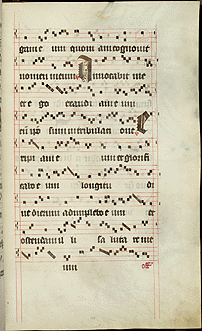 gam e um quoni am cognouit
nomen meum Inuocabit me
et e go exaudi am e um
sum in tribulati one E
ripi am e um et glorifi
cabo e um longitu di
ne dierum adimplebo e um et
ostendam il li sa luta re me
um